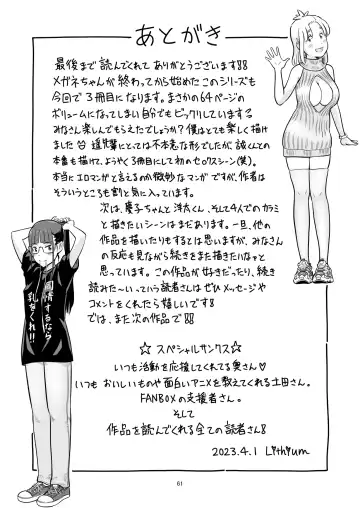 あとがき
最後まで読んでくれてありがとうございます!!
メガネちゃんが終わってから始めたこのシリーズも
今回で3冊目になります。まさかの64ページの
ボリュームになってしまい自分でもビックリしています
みなさん楽しんでもらえたでしょうか?僕はとても楽しく描け
ました 遠野輩にとっては不本意な形でしたが、談との
本番も描けて、ようやく3冊目にして初のセックスシーン(笑)。
本当にエロマンガと言えるのか微妙なマンガですが、作者は
そういうところも割と気に入っています。
次は、慶子ちゃんと洋太くん、そして4人でのカラミ
と描きたいシーンはまだあります。一旦、他の
作品を描いたりもするとは思いますが、みなさん
の反応も見ながら続きをまた描きたいなッと
思っています。この作品が好きだったり、続き
読みた〜いっていう読者さんはぜひメッセージや
コメントをくれたら嬉しいです!
では、また次の作品で!!
☆スペシャルサンクス☆
いつも活動を応援してくれてる奥さん♡
いつもおいしいものや面白いアニメを教えてくれる土田さん。
FANBOXの支援者さん。
そして
作品を読んでくれる全ての読者さん!
2023.4.1 Lithium
同情するなら
乳をくれ!!
61